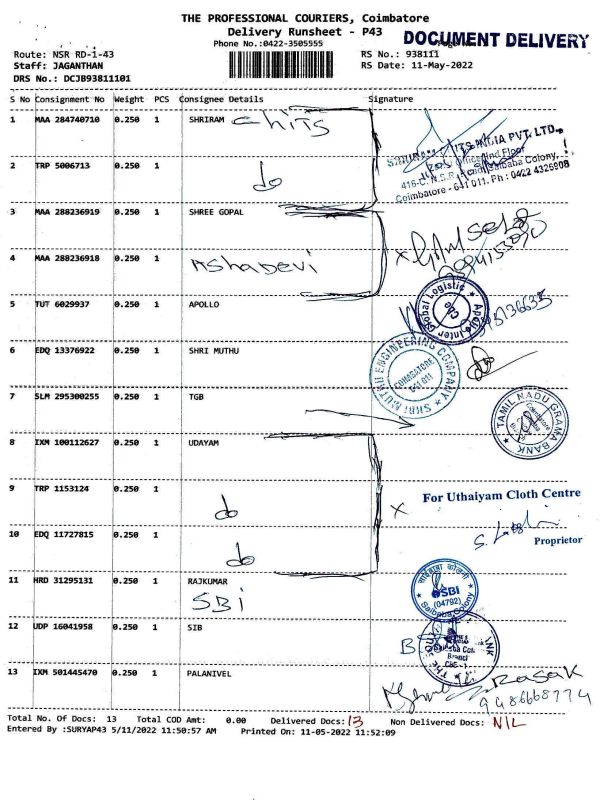 THE PROFESSIONAL COURIERS, Coimbatore
Delivery Runsheet - P43
DOCUMENT DELIVERY
Phone No.:0422-3505555
Route: NSR RD-1-43
RS No.: 938111
Staff: JAGANTHAN
RS Date: 11-May-2022
DRS No.: DCJB93811101
S No Consignment No Weight PCS Consignee Details Signature
1 MAA 284740710 0.250 1 SHRIRAM chits
CHITS INDIA PVT. LTD.,
2 TRP 5006713 0.250 1
do
Coimbatore - 641 011. Ph : 0422 4326908
3 MAA 288236919 0.250 1 SHREE GOPAL
4 MAA 288236918 0.250 1
AshaDevi
5 TUT 6029937 0.250 1 APOLLO
Apollo Inter Global Logistic
6 EDQ 13376922 0.250 1 SHRI MUTHU
SHRI MUTHU ENGINEERING COMPANY
COIMBATORE
641 011
7 SLM 295300255 0.250 1 TGB
TAMIL NADU GRAMA BANK
8 IXM 100112627 0.250 1 UDAYAM
9 TRP 1153124 0.250 1
do
For Uthaiyam Cloth Centre
10 EDQ 11727815 0.250 1
do
Proprietor
11 HRD 31295131 0.250 1 RAJKUMAR
SBi
SBI
(04792)
Saibaba Colony
12 UDP 16041958 0.250 1 SIB
13 IXM 501445470 0.250 1 PALANIVEL
RASAK
9486668774
Total No. Of Docs: 13 Total COD Amt: 0.00 Delivered Docs: 13 Non Delivered Docs: NIL
Entered By :SURYAP43 5/11/2022 11:50:57 AM Printed On: 11-05-2022 11:52:09